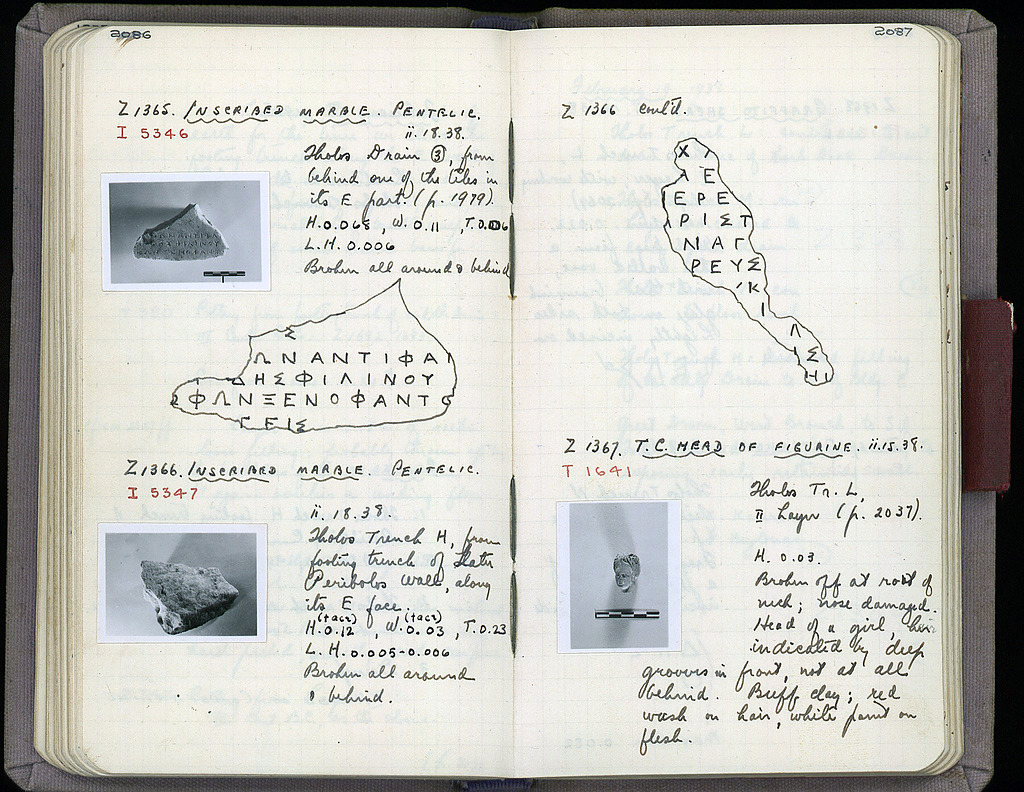 2086
Z 1365. INSCRIBED MARBLE. PENTELIC.
I 5346
ii.18.38.
Tholos Drain ③, from
behind one of the tiles in
its E part. (p. 1979).
H.0.068, W.0.11, T.0.06
L.H.0.006
Broken all around & behind
Σ
ΩΝΑΝΤΙΦΑ
ΔΗΣΦΙΛΙΝΟΥ
ΦΩΝΞΕΝΟΦΑΝΤ
ΓΕΙΣ
Z 1366. INSCRIBED MARBLE. PENTELIC.
I 5347
ii.18.38.
Tholos Trench H, from
footing trench of Later
Peribolos Wall, along
its E face.
(face) (face)
H.0.12, W.0.03, T.0.23
L.H.0.005-0.006
Broken all around
& behind.
2087
Z 1366 cont'd.
Χ
ΛΕ
ΕΡΕ
ΡΙΣΤ
ΝΑΓ
ΡΕΥΣ
ΚΙ
Λ
ΙΣ
ΗΙ
Z 1367. T.C. HEAD OF FIGURINE. ii.15.38.
T 1641
Tholos Tr. L,
II Layer (p. 2037).
H. 0.03.
Broken off at root of
neck; nose damaged.
Head of a girl, hair
indicated by deep
grooves in front, not at all
behind. Buff clay; red
wash on hair, white paint on
flesh.